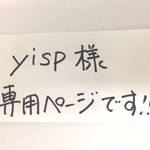 yisp 様
専用ページです!!